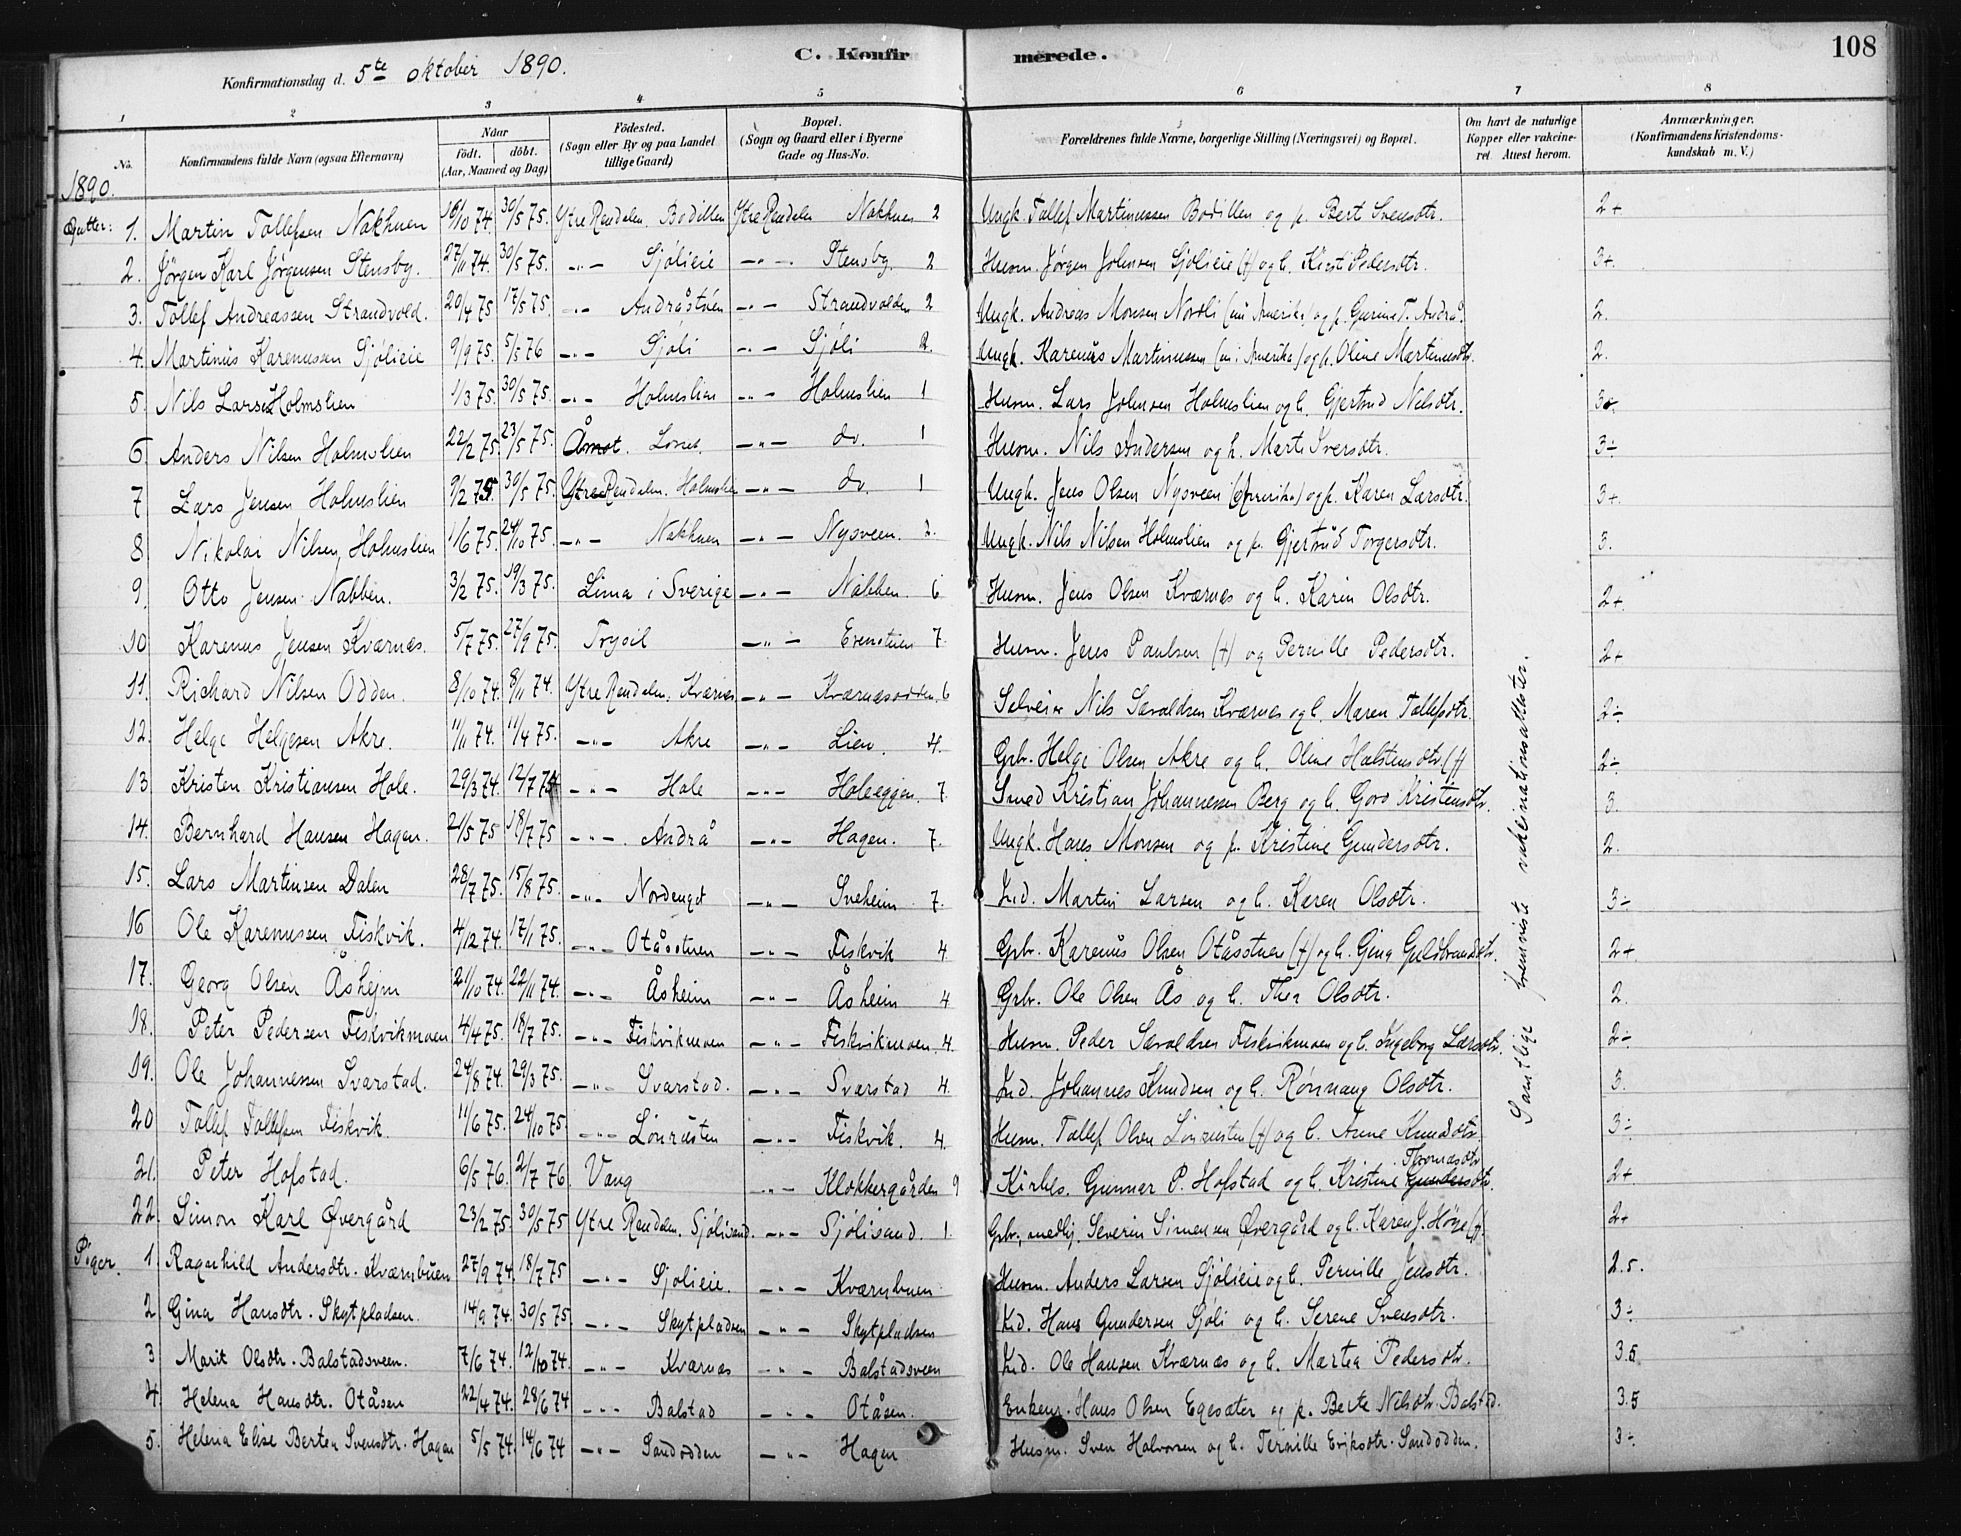 108
C. Konfirmerede.
Konfirmationsdag d. 5te oktober 1890.
1 2 3 4 5 6 7 8
No. Konfirmandens fulde Navn (ogsaa Efternavn) Naar født. døbt. (Aar, Maaned og Dag) Fødested. (Sogn eller By og paa Landet tillige Gaard) Bopæl. (Sogn og Gaard eller i Byerne Gade og Hus-No. Forældrenes fulde Navne, borgerlige Stilling (Næringsvei) og Bopæl. Om havt de naturlige Kopper eller vakcineret. Attest herom. Anmærkninger. (Konfirmandens Kristendomskundskab m. V.)
1890.
Gutter: 1. Martin Tollefsen Nakhuen 16/10 74. 30/5 75. Ytre Rendalen Bodillen Ytre Rendalen Nakhuen 2 Ungk. Tollef Martinussen Bodillen og p. Bert Svensdtr. 2+
2. Jörgen Karl Jörgensen Stensby. 27/11 74. 30/5 75. -"- Sjölieie -"- Stensby. 2 Husm. Jörgen Johnsen Sjölieie (+) og h. Kirsti Pedersdtr. 3+.
3. Tollef Andreassen Strandvold. 20/4 75 17/5 75. -"- Andråstuen -"- Strandvolden 2 Ungk. Andreas Monsen Nordli (nu i Amerika) og p. Gurine T. Andrå. 2.
4. Martinus Karenussen Sjölieie 9/9 75. 5/5 76 -"- Sjöli -"- Sjöli 2. Ungk. Karenus Martinussen (nu i Amerika) og p. Oline Martinusdtr. 2.
5. Nils Larsen Holmslien 1/3 75. 30/5 75. -"- Holmslien -"- Holmslien 1 Husm. Lars Johnsen Holmslien og h. Gjertrud Nilsdtr. 3
6. Anders Nilsen Holmslien 22/2 75. 23/5 75. Åmot. -"- do. 1 Husm. Nils Andersen og h. Marte Iversdtr. 3÷
7 Lars Jensen Holmslien 9/2 75. 30/5 75. Ytre Rendalen. Holmslien -"- do. 1 Ungk. Jens Olsen Nysveen (Amerika) og p. Karen Larsdtr. 3+.
8 Nikolai Nilsen Holmslien 1/6 75. 24/10 75. -"- Nakhuen -"- Nysveen. 2. Ungk. Nils Nilsen Holmslien og p. Gjertrud Torgersdtr. 3.
9. Otto Jensen Nabben. 3/2 75. 19/3 75. Lima i Sverige -"- Nabben. 6 Husm. Jens Olsen Kværnes og h. Karin Olsdtr. 2+.
10 Karenus Jensen Kværnæs. 5/7 75. 27/9 75. Trysil -"- Evenstuen 7. Husm. Jens Paulsen (+) og Pernille Pedersdtr. 2+
11. Richard Nilsen Odden. 8/10 74. 8/11 74. Ytre Rendalen. Kværnes -"- Kværnæsodden. 6 Selveier Nils Sævaldsen Kværnes og h. Maren Tollefsdtr. 2÷.
12. Helge Helgesen Akre. 11/11 74. 11/4 75. -"- Akre -"- Lien. 4. Grb. Helge Olsen Akre og h. Oline Halstensdtr (+) 2÷
13 Kristen Kristiansen Hole. 29/3 74. 12/7 74 -"- Hole -"- Holeeggen. 7. Smed Kristian Johannessen Berg og h. Goro Kristensdtr. 3.
14. Bernhard Hansen Hagen. 21/5 75 18/7 75 -"- Andrå -"- Hagen. 7. Ungk. Hans Monsen og p. Kristine Gundersdtr. 2.
15. Lars Martinsen Dalen 28/7 75. 15/8 75. -"- Nordenget -"- Sveheim 7. Ind. Martin Larsen og h. Karen Olsdtr. 3÷
16 Ole Karenussen Fiskvik. 4/12 74. 17/1 75. -"- Otåsstuen -"- Fiskvik 4. Grb. Karenus Olsen Otåsstuen (+) og h. Gina Guldbrandsdtr. 2+.
17. Georg Olsen Åsheim 21/10 74. 22/11 74. -"- Åsheim -"- Åsheim 4 Grb. Ole Olsen Ås og h. Thea Olsdtr. 2.
18. Peter Pedersen Fiskvikmoen 4/4 75. 18/7 75. -"- Fiskvikmoen -"- Fiskvikmoen. 4. Husm. Peder Sævaldsen Fiskvikmoen og h. Ingeborg Larsdtr. 2÷
19. Ole Johannessen Svarstad. 24/8 74. 29/3 75. -"- Svarstad. -"- Svarstad 4. Ind. Johannes Knudsen og h. Rönnaug Olsdtr. 3.
20 Tollef Tollefsen Fiskvik. 11/6 75. 24/10 75. -"- Lönrusten -"- Fiskvik. 4. Husm. Tollef Olsen Lönrusten (+) og h. Anne Knudsdtr. 3÷
21. Peter Hofstad. 6/5 76. 2/7 76 Vang -"- Klokkergården 9 Kirkes. Gunnar P. Hofstad og h. Kristine Gundersdtr. Thomasdtr. 2+
22. Simon Karl Øvergård 23/2 75. 30/5 75 Ytre Rendalen. Sjölisand. -"- Sjölisand. 1. Grb., medhj. Severin Simensen Øvergård og h. Karen J. Høye (+). 2+
Piger. 1. Ragnhild Andersdtr. Kværnbuen 27/9 74. 18/7 75 -"- Sjölieie. -"- Kværnbuen Husm. Anders Larsen Sjölieie og h. Pernille Jensdtr. 2.5.
2 Gina Hansdtr. Skytpladsen. 14/9 74. 30/5 75. -"- Skytpladsen -"- Skytpladsen Ind. Hans Gundersen Sjöli og h. Serene Svensdtr. 3÷
3 Marit Olsdtr. Balstadsveen. 7/6 74. 12/10 74. -"- Kværnæs -"- Balstadsveen Ind. Ole Hansen Kværnæs og h. Martea Pedersdtr. 3.5
4. Helena Hansdtr. Otåsen 22/4 74. 28/6 74 -"- Balstad -"- Otåsen. Enkem. Hans Olsen Egesæter og p. Berte Nilsdtr. Balstad. 3.5
5. Helena Elise Bertea Svensdtr. Hagen 5/5 74. 14/6 74 -"- Sandodden -"- Hagen Husm. Sven Halvorsen og h. Pernille Eriksdtr. Sandodden. 3÷
Samtlige fremviste vakcinationsattester.